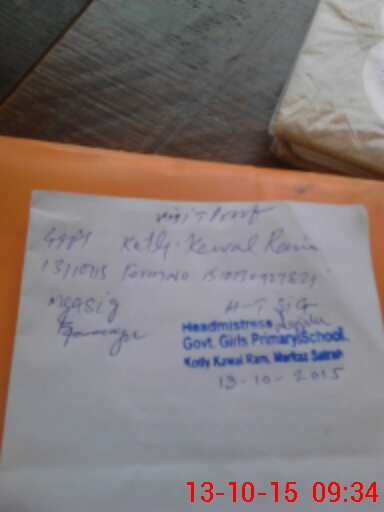 visit Proof
GGPS Kotly. Kewal Ram
13/10/15 Form no 1510130927521
H-T SiG
Headmistress
Govt. Girls Primary School.
Kotly Kawal Ram, Markaz Satrah
13-10-2015
13-10-15 09:34